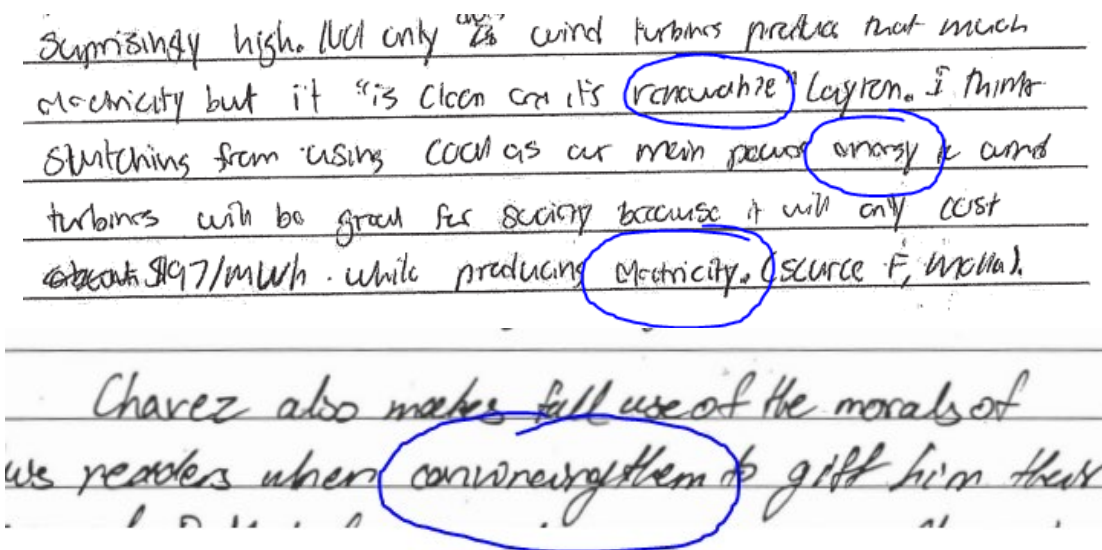 surprisingly high. Not only does wind turbines produce that much
electricity but it "is clean and it's renewable" Layton. I think
switching from using coal as our main power energy to wind
turbines will be great for society because it will only cost
$197/MWh. while producing electricity. (source F, Molla).
Chavez also makes full use of the morals of
readers when convincing them to gift him their